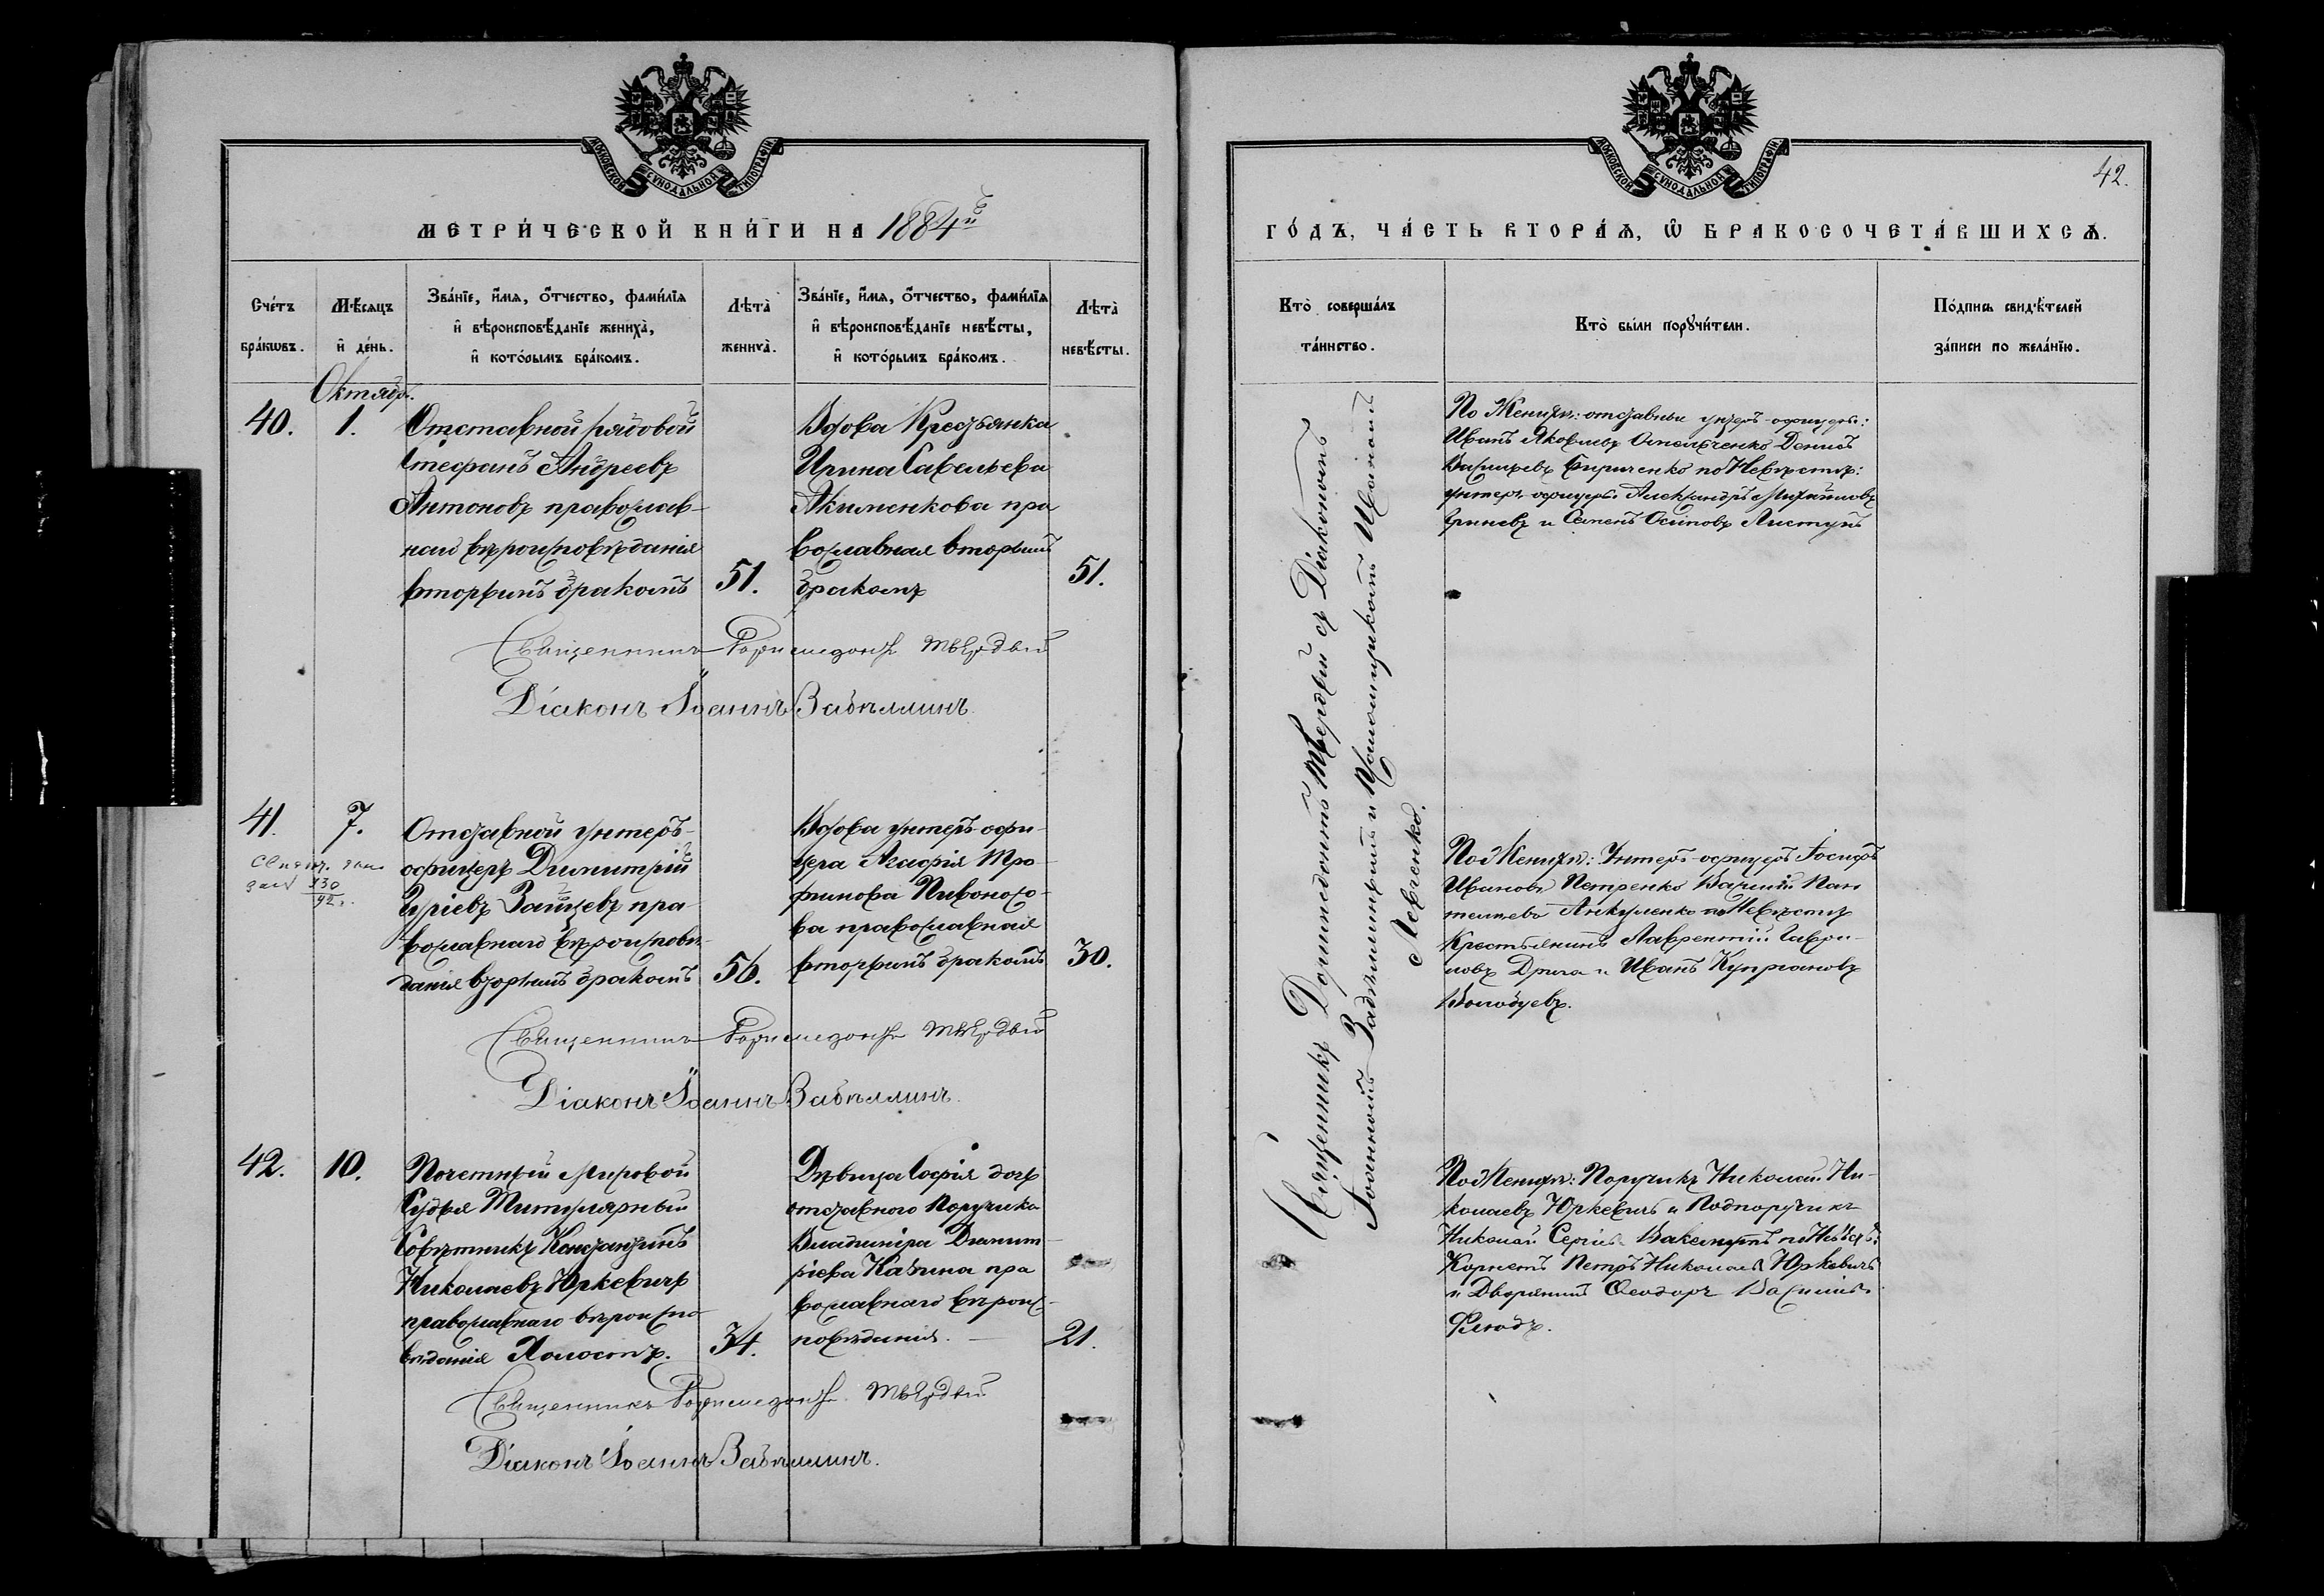 МОСКОВСКОЙ СУНОДАЛЬНОЙ ТИПОГРАФІИ
МЕТРИ́ЧЕСКОЙ КНИ́ГИ НА 1884й
Сче́тъ бра́кѡвъ.
Мѣ́сяцъ и҆ де́нь.
Зва́нїе, и҆́мя, ѻ҆́тчество, фами́лїя
и҆ вѣроисповѣ́данїе жениха̀,
и҆ кото́рымъ бра́комъ.
Лѣ́та̀
жениха̀.
Зва́нїе, и҆́мя, ѻ҆́тчество, фами́лїя
и҆ вѣроисповѣ́данїе невѣ́сты,
и҆ кото́рымъ бра́комъ.
Лѣ́та̀
невѣ́сты.
Октябр.
40.
1.
Отставной рядовой
Стефанъ Андреевъ
Антоновъ православ-
наго вѣроисповѣданія
вторымъ бракомъ
51.
Вдова Крестьянка
Ирина Савельева
Акименкова пра
вославная вторымъ
бракомъ
51.
Священникъ Дормидонтъ Твердый
Діаконъ Іоаннъ
41.
7.
130
92
Отставной унтеръ-
офицеръ Димитрій
Зайцевъ пра-
вославнаго вѣроисповѣ-
данія вторымъ бракомъ
56.
Вдова унтеръ-офи-
цера Агафія Тро-
фимова
ва православная
вторымъ бракомъ
30.
Священникъ Дормидонтъ Твердый
Діаконъ Іоаннъ
42.
10.
Почетный Мировой
Судья Титулярный
Совѣтникъ Константинъ
Николаевъ Юркевичъ
православнаго вѣроиспо
вѣданія Холостъ.
34.
Дѣвица Софія дочь
отставного Поручика
Владиміра Димит-
ріева пра
вославнаго вѣроис-
повѣданія.
21.
Священникъ Дормидонтъ Твердый
Діаконъ Іоаннъ
МОСКОВСКОЙ СУНОДАЛЬНОЙ ТИПОГРАФІИ
42.
ГО́ДЪ, ЧА́СТЬ ВТОРА́Я, Ѡ҆ БРАКОСОЧЕТА́ВШИХСЯ.
Кто̀ соверша́лъ
та́инство.
Кто̀ бы́ли порꙋчи́тели.
По́дпись свидѣ́телей
за́писи по жела́нїю.
Священникъ Дормидонтъ Твердый съ Діакономъ
Іоанномъ и Псаломщикомъ Иваномъ
Левченко.
По Женихѣ: отставные унтеръ-офицеры:
Иванъ Яковлевъ Омельченко Денисъ
Васильевъ Кириченко по Невѣстѣ:
унтеръ-офицеры Александръ Михайловъ
и Семенъ Осиповъ
По Женихѣ: Унтеръ-офицеръ Іосифъ
Ивановъ Петренко Василій Пан
телѣевъ по Невѣстѣ
Крестьянинъ Лаврентій Гаври-
ловъ Дрига и Иванъ Купріановъ
По Женихѣ: Поручикъ Николай Ни-
колаевъ Юркевичъ и Подпоручикъ
Николай Сергѣевъ по Невѣстѣ:
Корнетъ Петръ Николаевъ Юркевичъ
и Дворянинъ Ѳеодоръ Васильев.